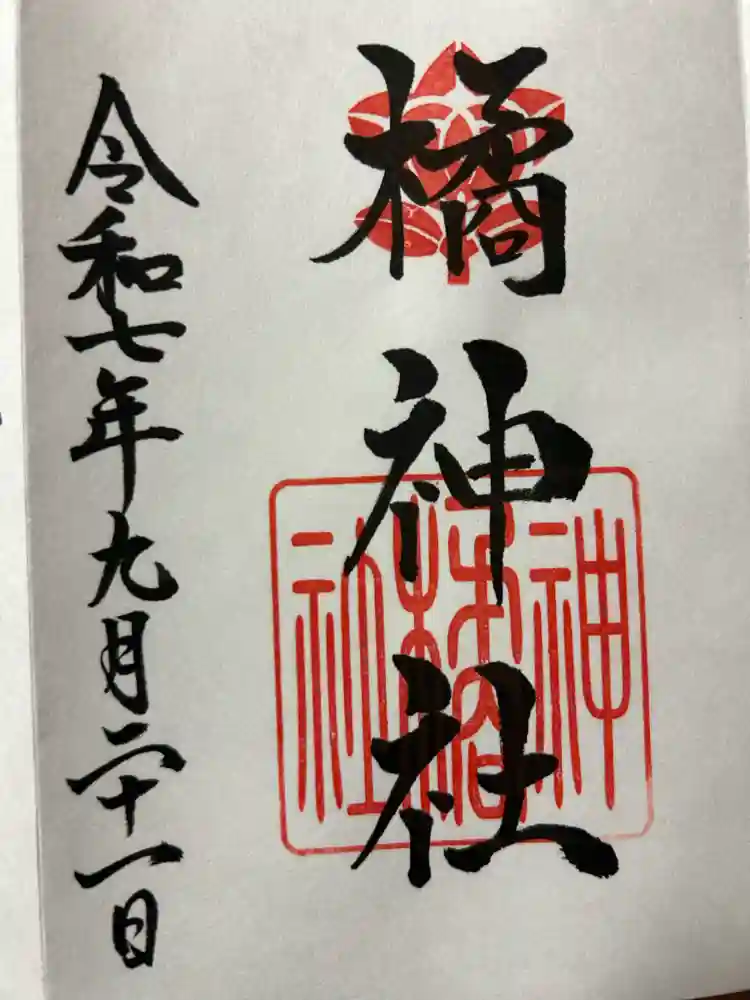 橘神社
神橘社
令和七年九月二十一日